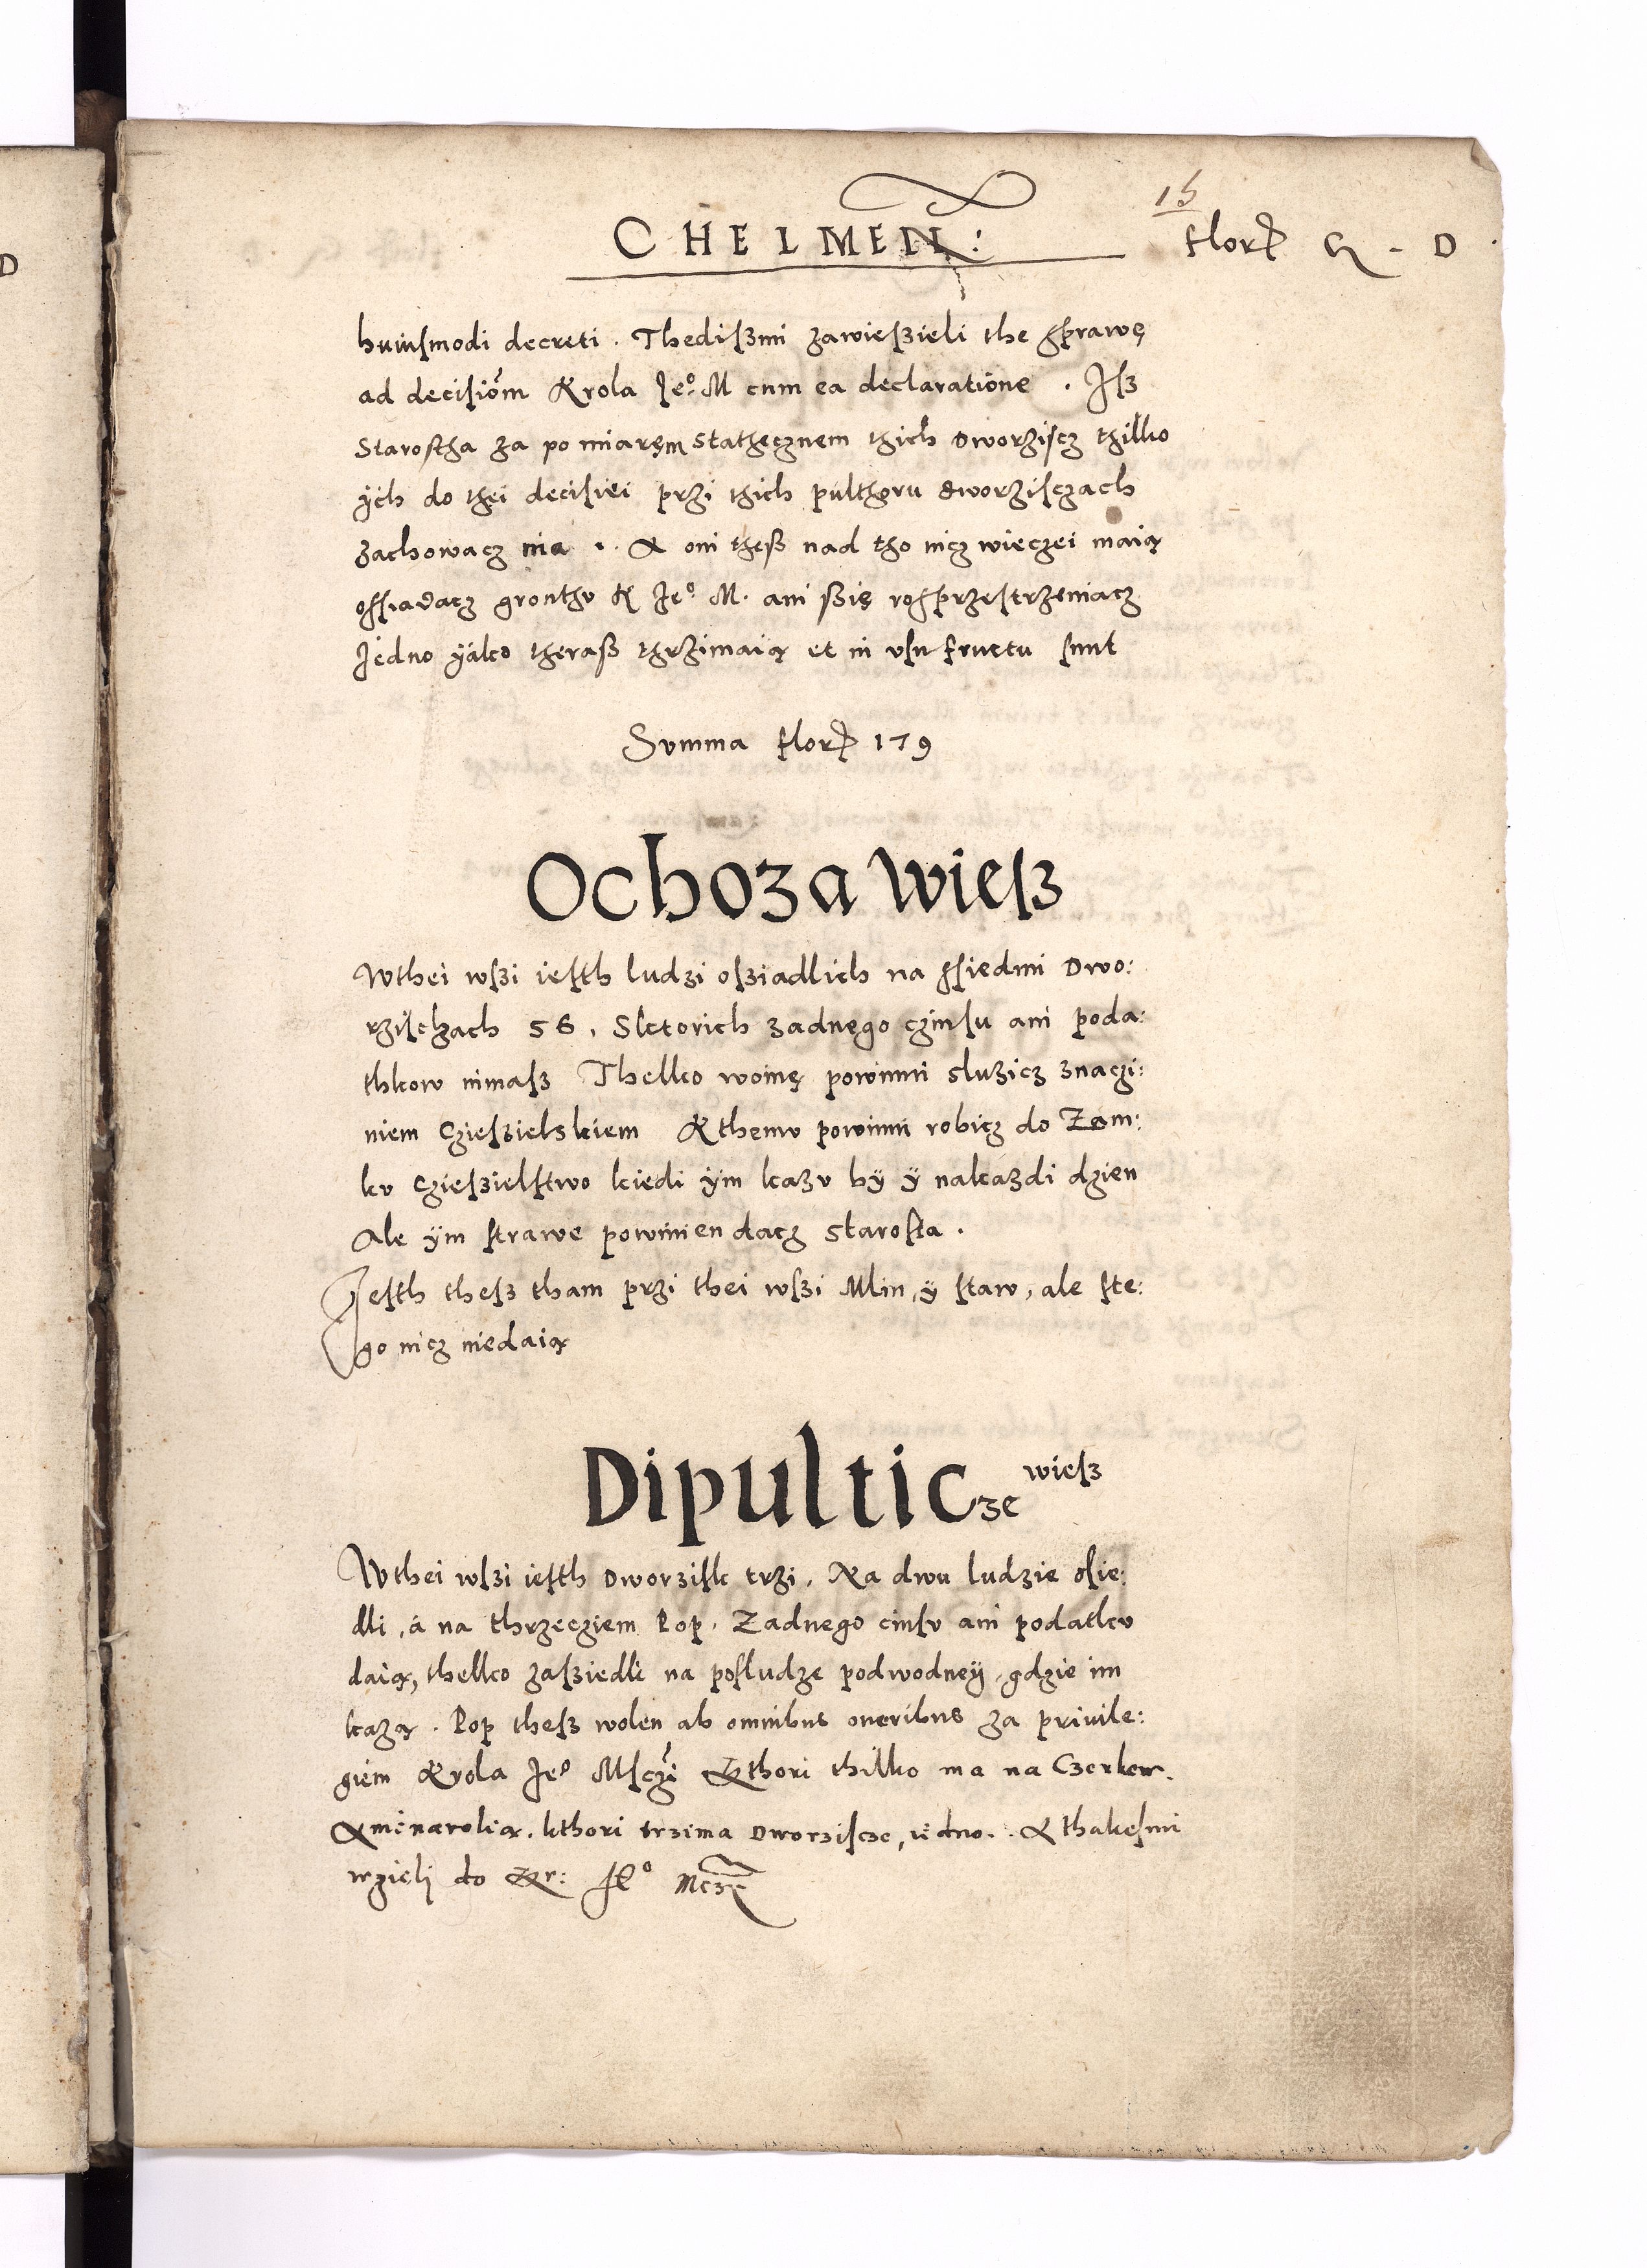 15
CHELMEN: Flor G - D
huiusmodi decreti. Thediszmi zawieszieli the sprawę
ad decisiom Krola Je° M cum ea declaratione. Jsz
Starostha za po miaręm stathecznem thich Dworziscz thilko
ÿch do thei decisiei przi thich pulthoru dworzisczach
zachowacz ma. A oni thesz nad tho nicz wieczei maią
ossiadacz gronthv K Je° M. ani szię rosprzestrzeniacz
Jedno ÿako therasz thrzimaią et in vsu fructu sunt
Svmma Flor 179
Ochoza Wiesz
Wthei wszi iesth ludzi osziadlich na ssiedmi Dwo:
rzischzach 56. Sktorich zadnego czinsu ani poda:
thkow nimasz Thelko woinę powinni sluzicz znaczi:
niem Czieszielskiem Kthemv powinni robicz do Zam:
kv Czieszielstwo kiedi ÿm kazv bÿ ÿ nakazdi dzien
Ale ÿm strawe powinien dacz starosta.
Jesth thesz tham przi thei wszi Mlin, ÿ staw, ale ste:
go nicz niedaią
Dipulticze wiesz
Wthei wszi iesth Dworzisk trzi. Na dwu ludzie ssie:
dli, a na thrzecziem Pop. Zadnego cinsv ani podatkv
daią, thelko zasziedli na posludze podwodneÿ, gdzie im
kazą. Pop thesz wolen ab omnibus oneribus za priuile:
giem Krola Je° Msczi Kthori thilko ma na Czerkew.
A minarolią. kthori trzima Dworziscze, iedno. A thakesmi
wzieli do Kr: Je° Mcz